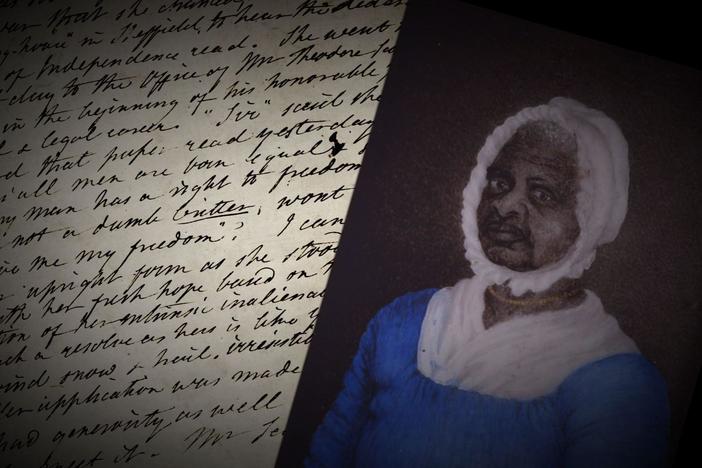 that she chanced
-house" in Sheffield, to hear the
of Independence read. She went
day to the Office of Mr Theodore
in the beginning of his honorable
& legal career. "Sir" said she
that paper read yesterday
all men are born equal &
man has a right to freedom
not a dumb critter; wont
me my freedom"? I can
upright form as she stood
her fresh hope based on
of her intrinsic
a resolve as hers is like
snow & hail, irresistible
application was made
had generosity as well
it. Mr